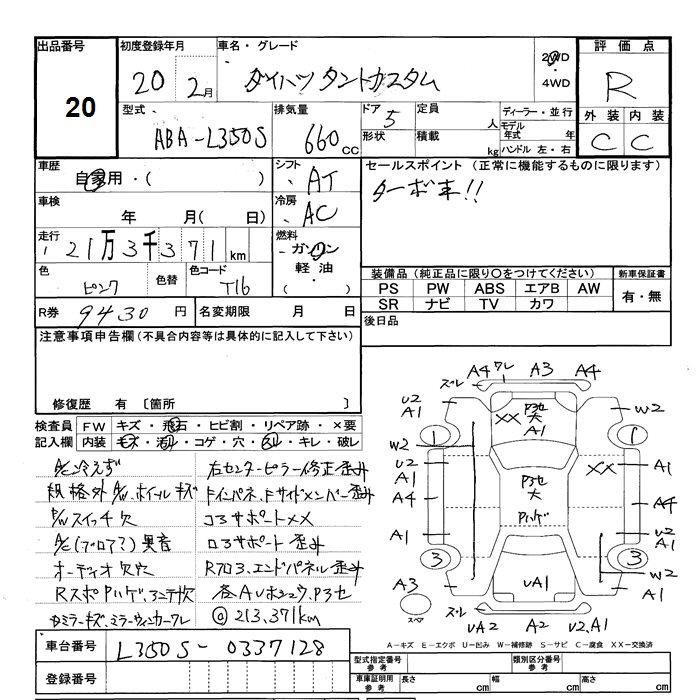 出品番号 初度登録年月 車名・グレード 評価点
20 20 2月 ダイハツ タントカスタム 2WD R
4WD
外装 内装
型式 排気量 ドア 定員 ディーラー・並行
ABA-L350S 660cc 5 人 モデル年式 年 C C
形状 積載 kg ハンドル 左・右
車歴 シフト セールスポイント (正常に機能するものに限ります)
自家用・( ) AT ターボ車!!
車検 冷房
年 月( 日) AC
走行 燃料
21万3千371km ガソリン
色 色替 色コード 軽油・ 装備品 (純正品に限り○をつけてください) 新車保証書
ピンク T16 ( ) PS PW ABS エアB AW 有・無
SR ナビ TV カワ
R券 9430円 名変期限 月 日 後日品
注意事項申告欄(不具合内容等は具体的に記入して下さい)
修復歴 有 〔箇所 〕
検査員 FW キズ・飛石・ヒビ割・リペア跡・×要
記入欄 内装 キズ・汚レ・コゲ・穴・スレ・キレ・破レ
A/C冷えず 左センターピラー修正歪み
規格外A/W、ホイルキズ
P/Wスイッチ欠 コアサポート××
A/C(ブロア?)異音 ロアサポート歪み
オーディオ欠穴 Rフロア、エンドパネル歪み
RスポPハゲ、アンテナ欠
ドアミラーキズ、ミラーウィンカーワレ @213,371km
A4 ワレ A3 A4
ズレ
U2 A1 ×× Pヌケ 大 A1 W2
1 1
W2 U2 A1 ×× A1
A4 大 Pハゲ A4
A1 U2 A1
3 3
W2
A3 UA1
スペア ズレ UA2 A2 U2、A1
車台番号 L350S-0337128
A-キズ E-エクボ U-凹み W-補修跡 S-サビ C-腐食 XX-交換済
登録番号 型式指定番号 参考 類別区分番号 参考
車庫証明用 参考 長さ cm 幅 cm 高さ cm